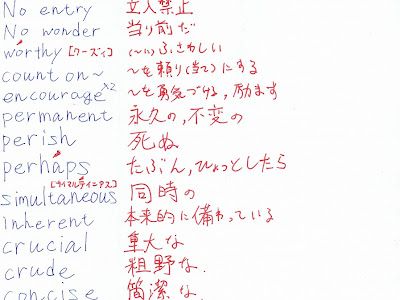 No entry 立入禁止
No wonder 当り前だ
worthy [ワーズィ] (〜に)ふさわしい
count on~ 〜を頼り(当て)にする
encourage ×2 〜を勇気づける, 励ます
permanent 永久の, 不変の
perish 死ぬ
perhaps たぶん, ひょっとしたら
[サイマルテイニアス]
simultaneous 同時の
inherent 本来的に備わっている
crucial 重大な
crude 粗野な.
concise 簡潔な.